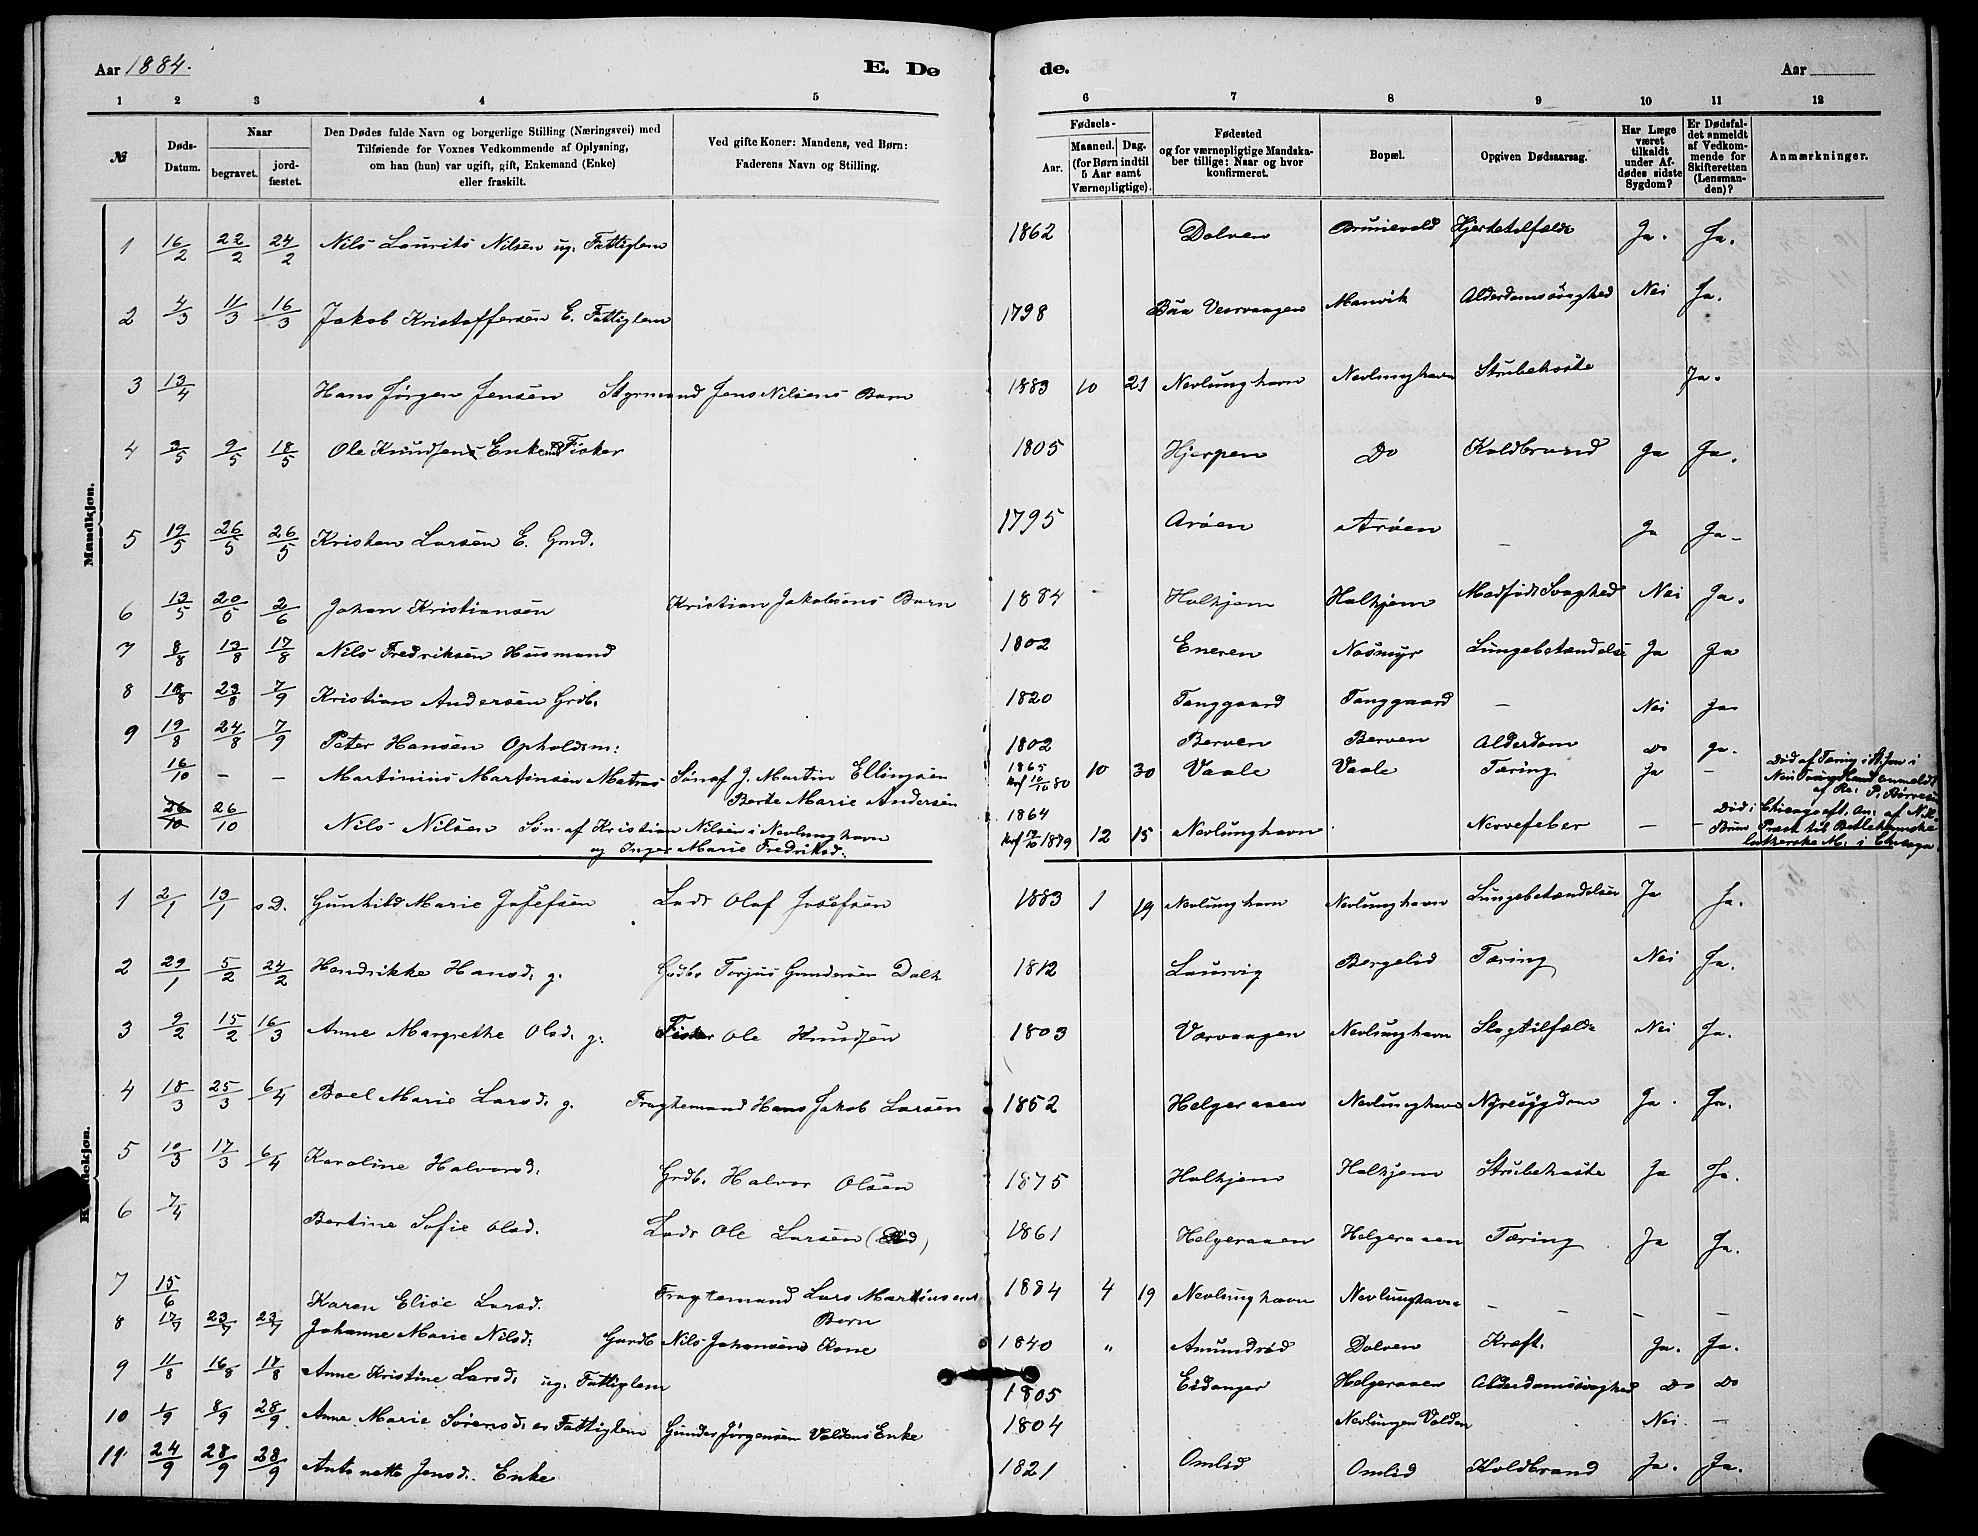 Aar 1884.
E. Dø
de.
Aar
1 2 3 4 5 6 7 8 9 10 11 12
№
Døds-Datum.
Naar
begravet.
jord-fæstet.
Den Dødes fulde Navn og borgerlige Stilling (Næringsvei) med
Tilføiende for Voxnes Vedkommende af Oplysning,
om han (hun) var ugift, gift, Enkemand (Enke)
eller fraskilt.
Ved gifte Koner: Mandens, ved Børn:
Faderens Navn og Stilling.
Fødsels-
Aar.
Maaned. Dag.
(for Børn indtil
5 Aar samt
Værnepligtige).
Fødested
og for værnepligtige Mandska-
ber tillige: Naar og hvor
konfirmeret.
Bopæl.
Opgiven Dødsaarsag.
Har Læge
været
tilkaldt
under Af-
dødes sidste
Sygdom?
Er Dødsfal-
det anmeldt
af Vedkom-
mende for
Skifteretten
(Lensman-
den)?
Anmærkninger.
Mandkjøn.
1 16/2 22/2 24/2 Nils Laurits Nilsen ug. Fattiglem 1862 Dolven Brunevald Hjertetilfælde Ja. Ja.
2 4/3 11/3 16/3 Jakob Kristoffersen E. Fattiglem 1798 Manvik Alderdomssvaghed Nei Ja.
3 13/4 Hans Jørgen Jensen Styrmand Jens Nilsens Barn 1883 10 21 Nevlunghavn Nevlunghavn Strubehoste Ja.
4 3/5 9/5 18/5 Ole Knudsen Enkem Fisker 1805 Hjerpen Do Koldbrand Ja Ja.
5 19/5 26/5 26/5 Kristen Larsen E. Gmd. 1795 Arøen Arøen – Ja Ja –
6 13/5 20/5 2/6 Johan Kristiansen Kristian Jakobsens Barn 1884 Holkjem Holkjem Medfødt Svaghed Nei Ja.
7 8/8 13/8 17/8 Nils Fredriksen Husmand 1802 Eneren Nøsmyr Lungebetændelse Ja Ja
8 18/8 23/8 7/9 Kristian Andersen Grdb. 1820 Tanggaard Tanggaard – Nei Ja
9 19/8 24/8 7/9 Peter Hansen Opholdsm: 1802 Berven Berven Alderdom Do Ja.
16/10 – – Martinius Martinsen Matros Søn af J. Martin Ellingsen 1865 10 30 Vaale Vaale Tæring Ja –
Berte Marie Andersen
26/10 26/10 Nils Nilsen Søn af Kristian Nilsen i Nevlunghavn 1864 12 15 Nevlunghavn Nervefeber – –
og Inger Marie Fredriksd.
Præst til Betlehemske
lutherske M. i Chicago
Kvindekjøn.
1 2/1 13/1 s D. Gunhild Marie Josefsen Lods Olaf Josefsen 1883 1 19 Nevlunghavn Nevlunghavn Lungebetændelse Ja Ja.
2 29/1 5/2 24/2 Hendrikke Hansd. g. Grdb. Torjus Gundersen 1812 Laurvig Bergelid Tæring Nei Ja.
3 9/2 15/2 16/3 Anne Margrethe Olsd. g. Fisker Ole Knudsen 1803 Værvaagen Nevlunghavn Slagtilfælde Nei Ja.
4 18/3 25/3 6/4 Boel Marie Larsd. g. Fragtemand Hans Jakob Larsen 1852 Helgeraaen Nevlunghavn Nyresygdom Ja. Ja.
5 10/3 17/3 6/4 Karoline Halvorsd. Grdb. Halvor Olsen 1875 Holkjem Holkjem Strubehoste Ja Ja.
6 7/4 Bertine Sofie Olsd. Lods Ole Larsen (Død) 1861 Helgeraaen Helgeraaen Tæring Ja Ja.
7 15/6 Karen Elise Larsd. Fragtemand Lars Martinsens 1884 4 19 Nevlunghavn Nevlunghavn – – –
Barn
8 17/7 23/7 23/7 Johanne Marie Nilsd. Gaardb Nils Johansens Kone 1840 „ Amundrød Dolven Kræft. Ja. Ja.
9 11/8 16/8 17/8 Anne Kristine Larsd. ug. Fattiglem 1805 Eidanger Helgeraaen Alderdomssvaghed Do Do
10 1/9 8/9 28/9 Anne Marie Sørensd. Fattiglem Gunder Jørgensen Valdens Enke 1804 Nevlungen Valden Nei –
11 24/9 28/9 28/9 Antonette Jensd. Enke 1821 Omlid Omlid Koldbrand Ja. Ja.